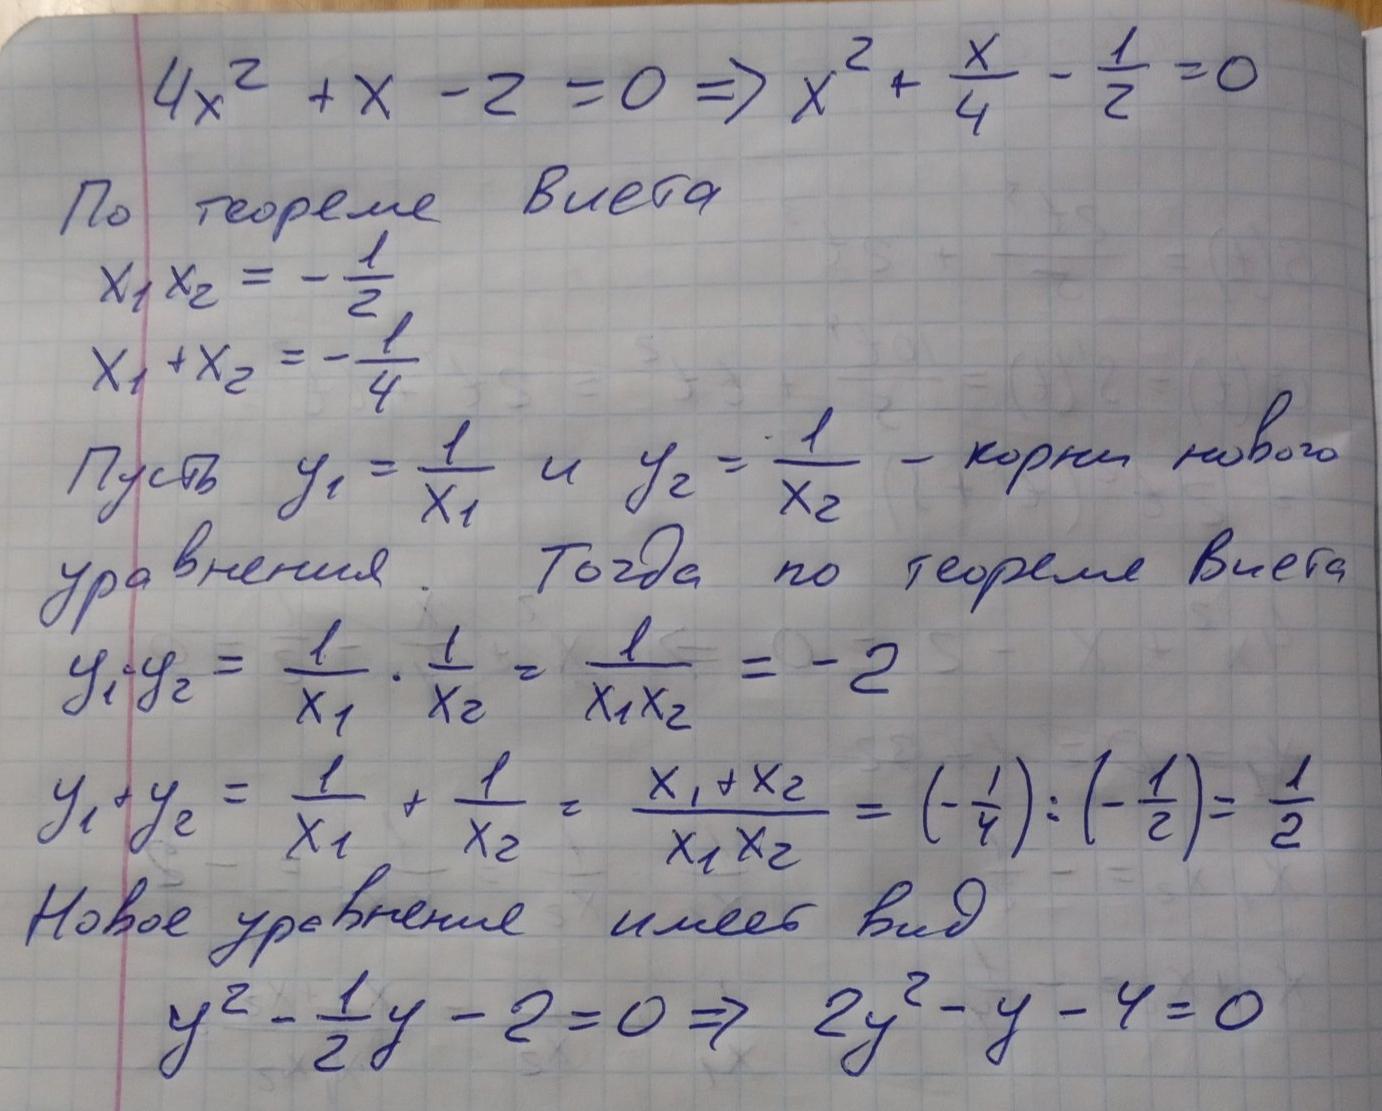 4x² + x - 2 = 0 => x² + x/4 - 1/2 = 0
По теореме Виета
x₁ x₂ = - 1/2
x₁ + x₂ = - 1/4
Пусть y₁ = 1/x₁ и y₂ = 1/x₂ - корни нового
уравнения. Тогда по теореме Виета
y₁·y₂ = 1/x₁ · 1/x₂ = 1/(x₁x₂) = - 2
y₁+y₂ = 1/x₁ + 1/x₂ = (x₁+x₂)/(x₁x₂) = (-1/4):(-1/2) = 1/2
Новое уравнение имеет вид
y² - 1/2 y - 2 = 0 => 2y² - y - 4 = 0